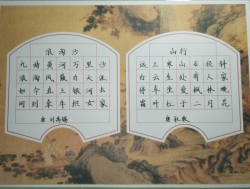 浪淘沙
九曲黄河万里沙
浪淘风簸自天涯
如今直上银河去
同到牵牛织女家
唐 刘禹锡
山行
远上寒山石径斜
白云生处有人家
停车坐爱枫林晚
霜叶红于二月花
唐 杜牧